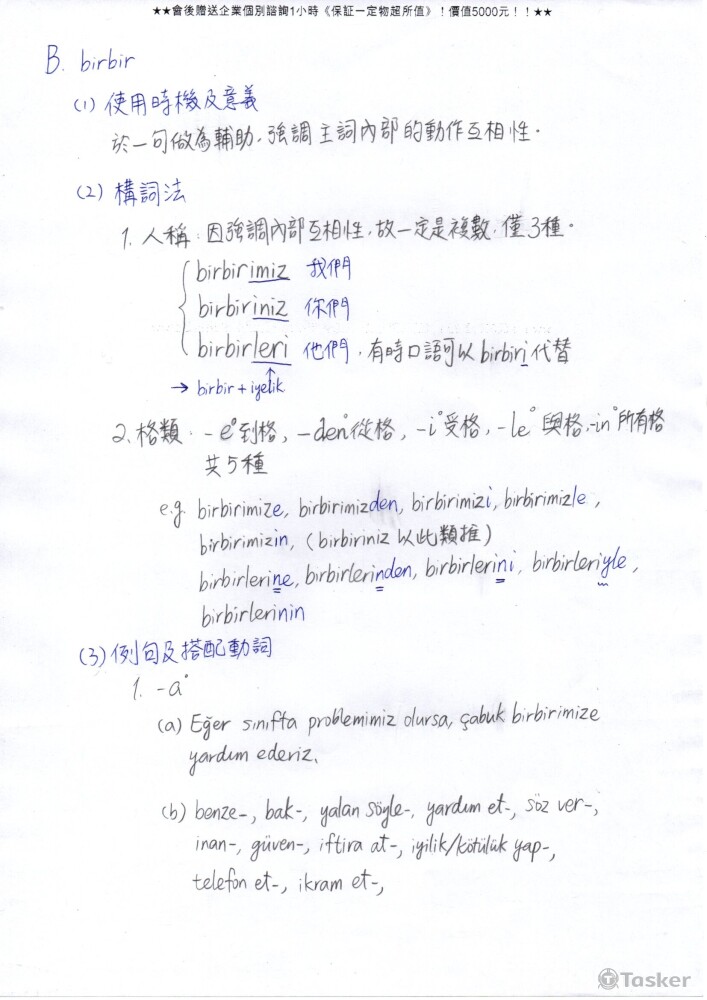 ★★會後贈送企業個別諮詢1小時《保証一定物超所值》！價值5000元！！★★
B. birbir
(1) 使用時機及意義
於一句做為輔助，強調主詞內部的動作互相性。
(2) 構詞法
1. 人稱：因強調內部互相性，故一定是複數，僅3種。
birbirimiz 我們
birbiriniz 你們
birbirleri 他們，有時口語可以birbiri代替
→ birbir + iyelik
2. 格類：-e°到格, -den°從格, -i°受格, -le°與格, -in°所有格
共5種
e.g. birbirimize, birbirimizden, birbirimizi, birbirimizle,
birbirimizin, (birbiriniz 以此類推)
birbirlerine, birbirlerinden, birbirlerini, birbirleriyle,
birbirlerinin
(3) 例句及搭配動詞
1. -a°
(a) Eğer sınıfta problemimiz olursa, çabuk birbirimize
yardım ederiz.
(b) benze-, bak-, yalan söyle-, yardım et-, söz ver-,
inan-, güven-, iftira at-, iyilik/kötülük yap-,
telefon et-, ikram et-,
Tasker